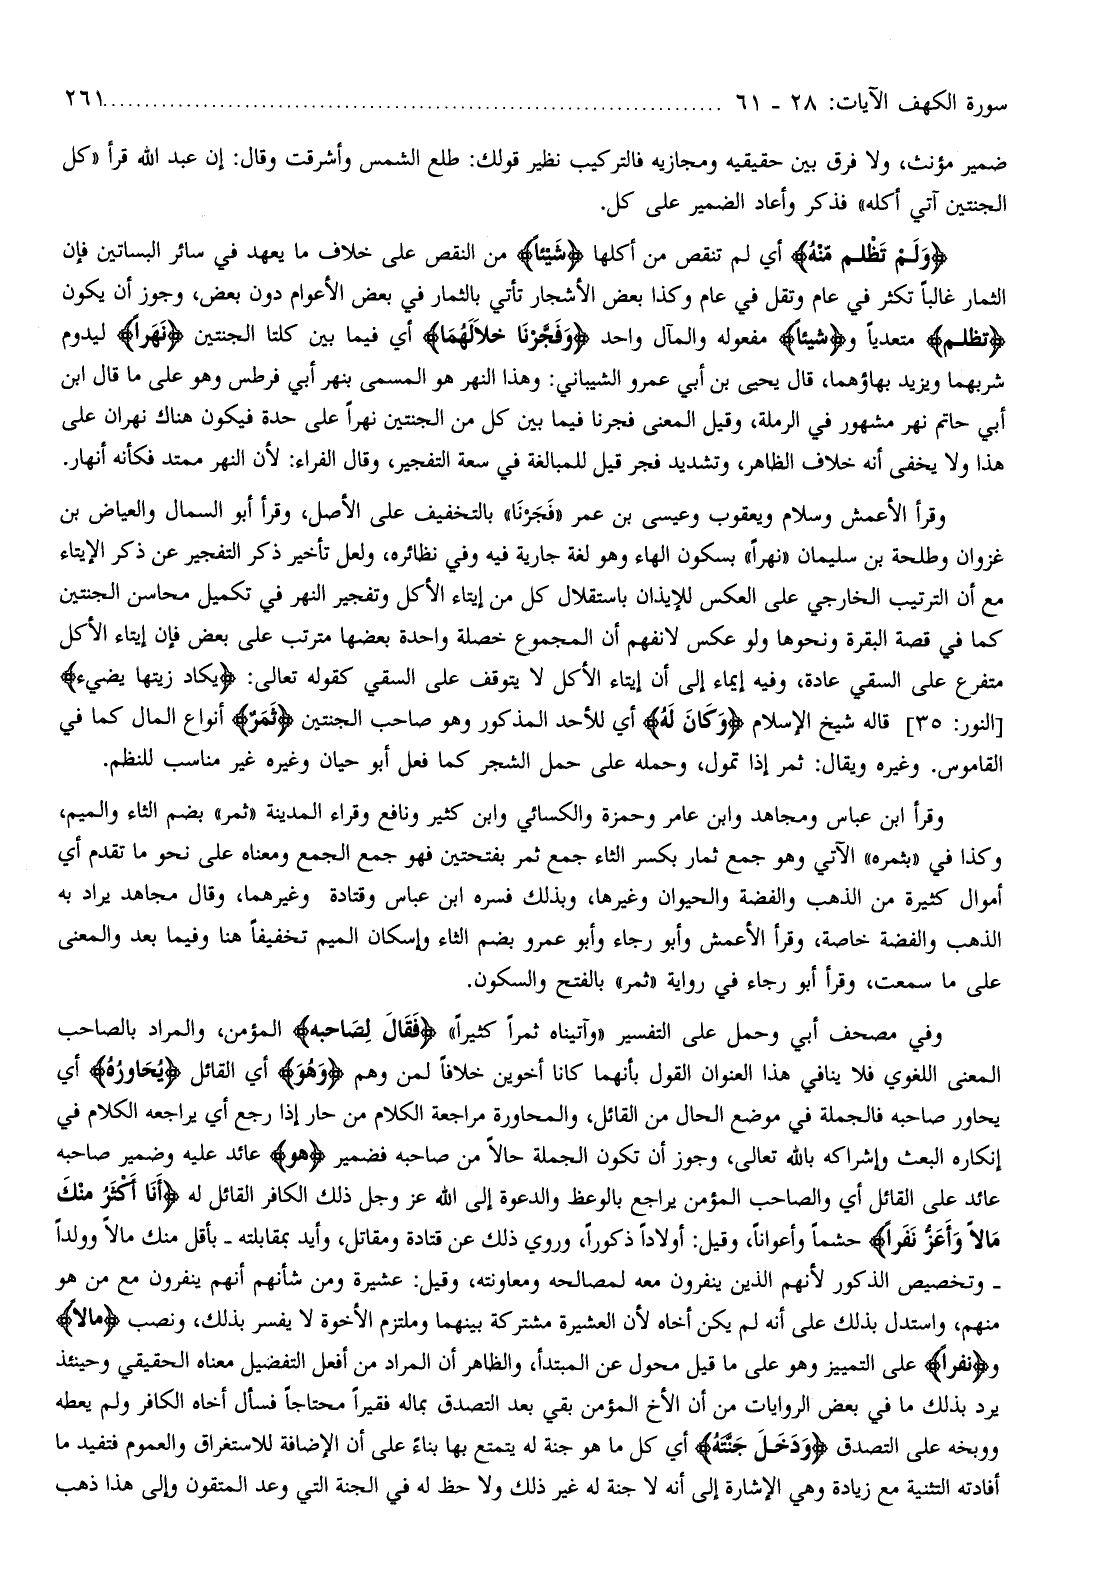 سورة الكهف الآيات: ٢٨ ـ ٦١ ........................................................................... ٢٦١
ضمير مؤنث، ولا فرق بين حقيقيه ومجازيه فالتركيب نظير قولك: طلع الشمس وأشرقت وقال: إن عبد الله قرأ «كل
الجنتين آتي أكله» فذكر وأعاد الضمير على كل.
﴿وَلَمْ تَظْلم مِّنْهُ﴾ أي لم تنقص من أكلها ﴿شَيْئاً﴾ من النقص على خلاف ما يعهد في سائر البساتين فإن
الثمار غالباً تكثر في عام وتقل في عام وكذا بعض الأشجار تأتي بالثمار في بعض الأعوام دون بعض، وجوز أن يكون
﴿تظلم﴾ متعدياً و﴿شيئاً﴾ مفعوله والمآل واحد ﴿وَفَجَّرْنَا خلاَلَهُمَا﴾ أي فيما بين كلتا الجنتين ﴿نَهَراً﴾ ليدوم
شربهما ويزيد بهاؤهما، قال يحيى بن أبي عمرو الشيباني: وهذا النهر هو المسمى بنهر أبي فرطس وهو على ما قال ابن
أبي حاتم نهر مشهور في الرملة، وقيل المعنى فجرنا فيما بين كل من الجنتين نهراً على حدة فيكون هناك نهران على
هذا ولا يخفى أنه خلاف الظاهر، وتشديد فجر قيل للمبالغة في سعة التفجير، وقال الفراء: لأن النهر ممتد فكأنه أنهار.
وقرأ الأعمش وسلام ويعقوب وعيسى بن عمر «فَجَرْنَا» بالتخفيف على الأصل، وقرأ أبو السمال والعياض بن
غزوان وطلحة بن سليمان «نهراً» بسكون الهاء وهو لغة جارية فيه وفي نظائره، ولعل تأخير ذكر التفجير عن ذكر الإيتاء
مع أن الترتيب الخارجي على العكس للإيذان باستقلال كل من إيتاء الأكل وتفجير النهر في تكميل محاسن الجنتين
كما في قصة البقرة ونحوها ولو عكس لانفهم أن المجموع خصلة واحدة بعضها مترتب على بعض فإن إيتاء الأكل
متفرع على السقي عادة، وفيه إيماء إلى أن إيتاء الأكل لا يتوقف على السقي كقوله تعالى: ﴿يكاد زيتها يضيء﴾
[النور: ٣٥] قاله شيخ الإسلام ﴿وَكَانَ لَهُ﴾ أي للأحد المذكور وهو صاحب الجنتين ﴿ثَمَرٌ﴾ أنواع المال كما في
القاموس. وغيره ويقال: ثمر إذا تمول، وحمله على حمل الشجر كما فعل أبو حيان وغيره غير مناسب للنظم.
وقرأ ابن عباس ومجاهد وابن عامر وحمزة والكسائي وابن كثير ونافع وقراء المدينة «ثمر» بضم الثاء والميم،
وكذا في «بثمره» الآتي وهو جمع ثمار بكسر الثاء جمع ثمر بفتحتين فهو جمع الجمع ومعناه على نحو ما تقدم أي
أموال كثيرة من الذهب والفضة والحيوان وغيرها، وبذلك فسره ابن عباس وقتادة وغيرهما، وقال مجاهد يراد به
الذهب والفضة خاصة، وقرأ الأعمش وأبو رجاء وأبو عمرو بضم الثاء وإسكان الميم تخفيفاً هنا وفيما بعد والمعنى
على ما سمعت، وقرأ أبو رجاء في رواية «ثمر» بالفتح والسكون.
وفي مصحف أبي وحمل على التفسير «وآتيناه ثمراً كثيراً» ﴿فَقَالَ لِصَاحبه﴾ المؤمن، والمراد بالصاحب
المعنى اللغوي فلا ينافي هذا العنوان القول بأنهما كانا أخوين خلافاً لمن وهم ﴿وَهُوَ﴾ أي القائل ﴿يُحَاورُهُ﴾ أي
يحاور صاحبه فالجملة في موضع الحال من القائل، والمحاورة مراجعة الكلام من حار إذا رجع أي يراجعه الكلام في
إنكاره البعث وإشراكه بالله تعالى، وجوز أن تكون الجملة حالاً من صاحبه فضمير ﴿هو﴾ عائد عليه وضمير صاحبه
عائد على القائل أي والصاحب المؤمن يراجع بالوعظ والدعوة إلى الله عز وجل ذلك الكافر القائل له ﴿أَنَا أَكْثَرُ منْكَ
مَالاً وَأَعَزُّ نَفَراً﴾ حشماً وأعواناً، وقيل: أولاداً ذكوراً، وروي ذلك عن قتادة ومقاتل، وأيد بمقابلته ـ بأقل منك مالاً وولداً
ـ وتخصيص الذكور لأنهم الذين ينفرون معه لمصالحه ومعاونته، وقيل: عشيرة ومن شأنهم أنهم ينفرون مع من هو
منهم، واستدل بذلك على أنه لم يكن أخاه لأن العشيرة مشتركة بينهما وملتزم الأخوة لا يفسر بذلك، ونصب ﴿مالاً﴾
و﴿نفراً﴾ على التمييز وهو على ما قيل محول عن المبتدأ، والظاهر أن المراد من أفعل التفضيل معناه الحقيقي وحينئذ
يرد بذلك ما في بعض الروايات من أن الأخ المؤمن بقي بعد التصدق بماله فقيراً محتاجاً فسأل أخاه الكافر ولم يعطه
ووبخه على التصدق ﴿وَدَخَلَ جَنَّتَهُ﴾ أي كل ما هو جنة له يتمتع بها بناءً على أن الإضافة للاستغراق والعموم فتفيد ما
أفادته التثنية مع زيادة وهي الإشارة إلى أنه لا جنة له غير ذلك ولا حظ له في الجنة التي وعد المتقون وإلى هذا ذهب